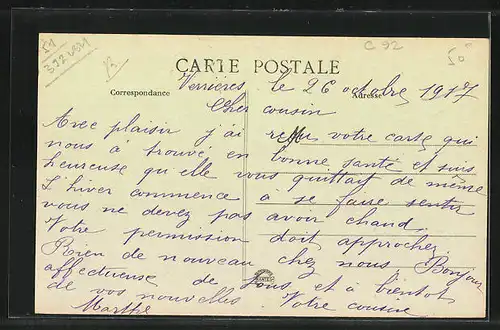 51
392 
13.
C 92
50
CARTE POSTALE
Correspondance
Adresse
Verrières le 26 octobre 1917
Cher cousin
Avec plaisir j'ai reçu votre carte qui
nous à trouvé en bonne santé et suis
heureuse qu'elle vous quittait de même
L'hiver commence à se faire sentir
vous ne devez pas avoir chaud,
Votre permission doit approcher,
Rien de nouveau chez nous Bonjour
affectueuse de tous et à bientot
de vos nouvelles. Votre cousine
Marthe